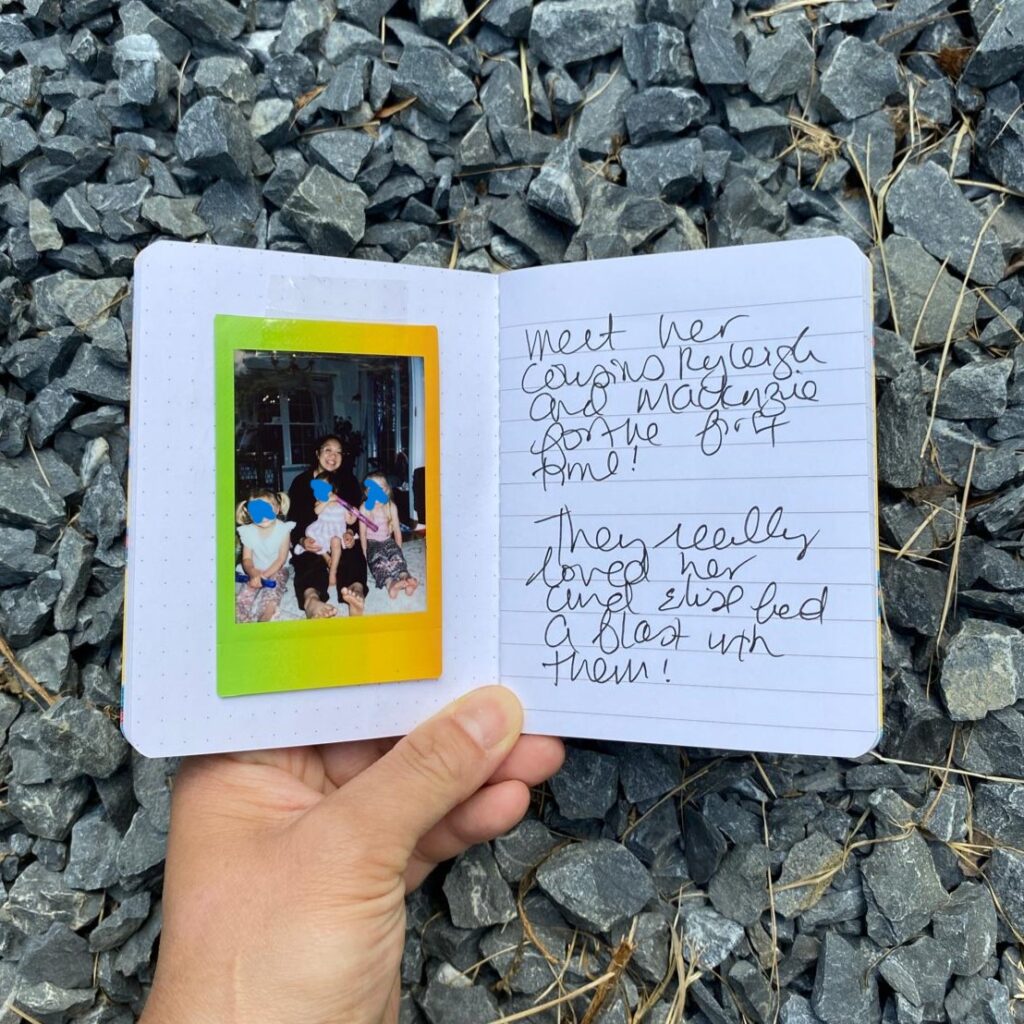 meet her
cousins Ryleigh
and Mackenzie
for the first
time!
They really
loved her
and Elise had
a blast with
them!